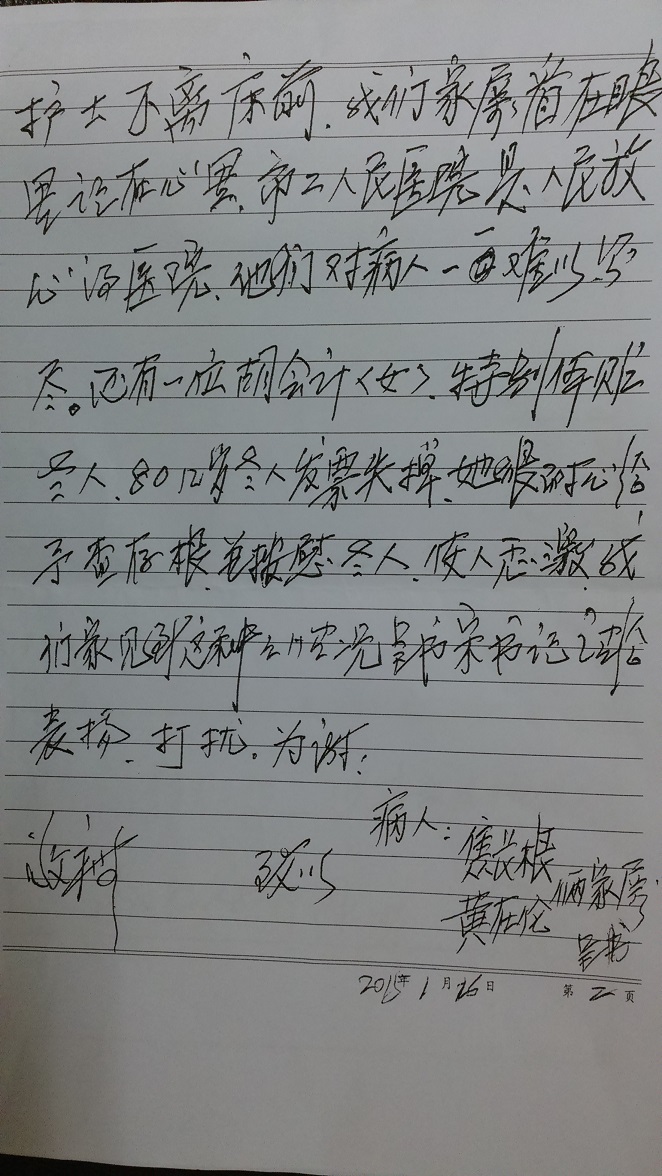 护士不离床前.我们家属看在眼
里记在心里.市二人民医院是人民放
心的医院.他们对病人一再难以写
尽。还有一位胡会计(女).特别体贴
老人.80几岁老人发票失掉.她很耐心给
予查存根.安慰老人.使人感激.我
们家见到这种情况呈书宋书记
表扬.打扰.为谢:
病人: 焦长根
致以
黄在伦 俩家属
呈书
2015年1月26日 第2页